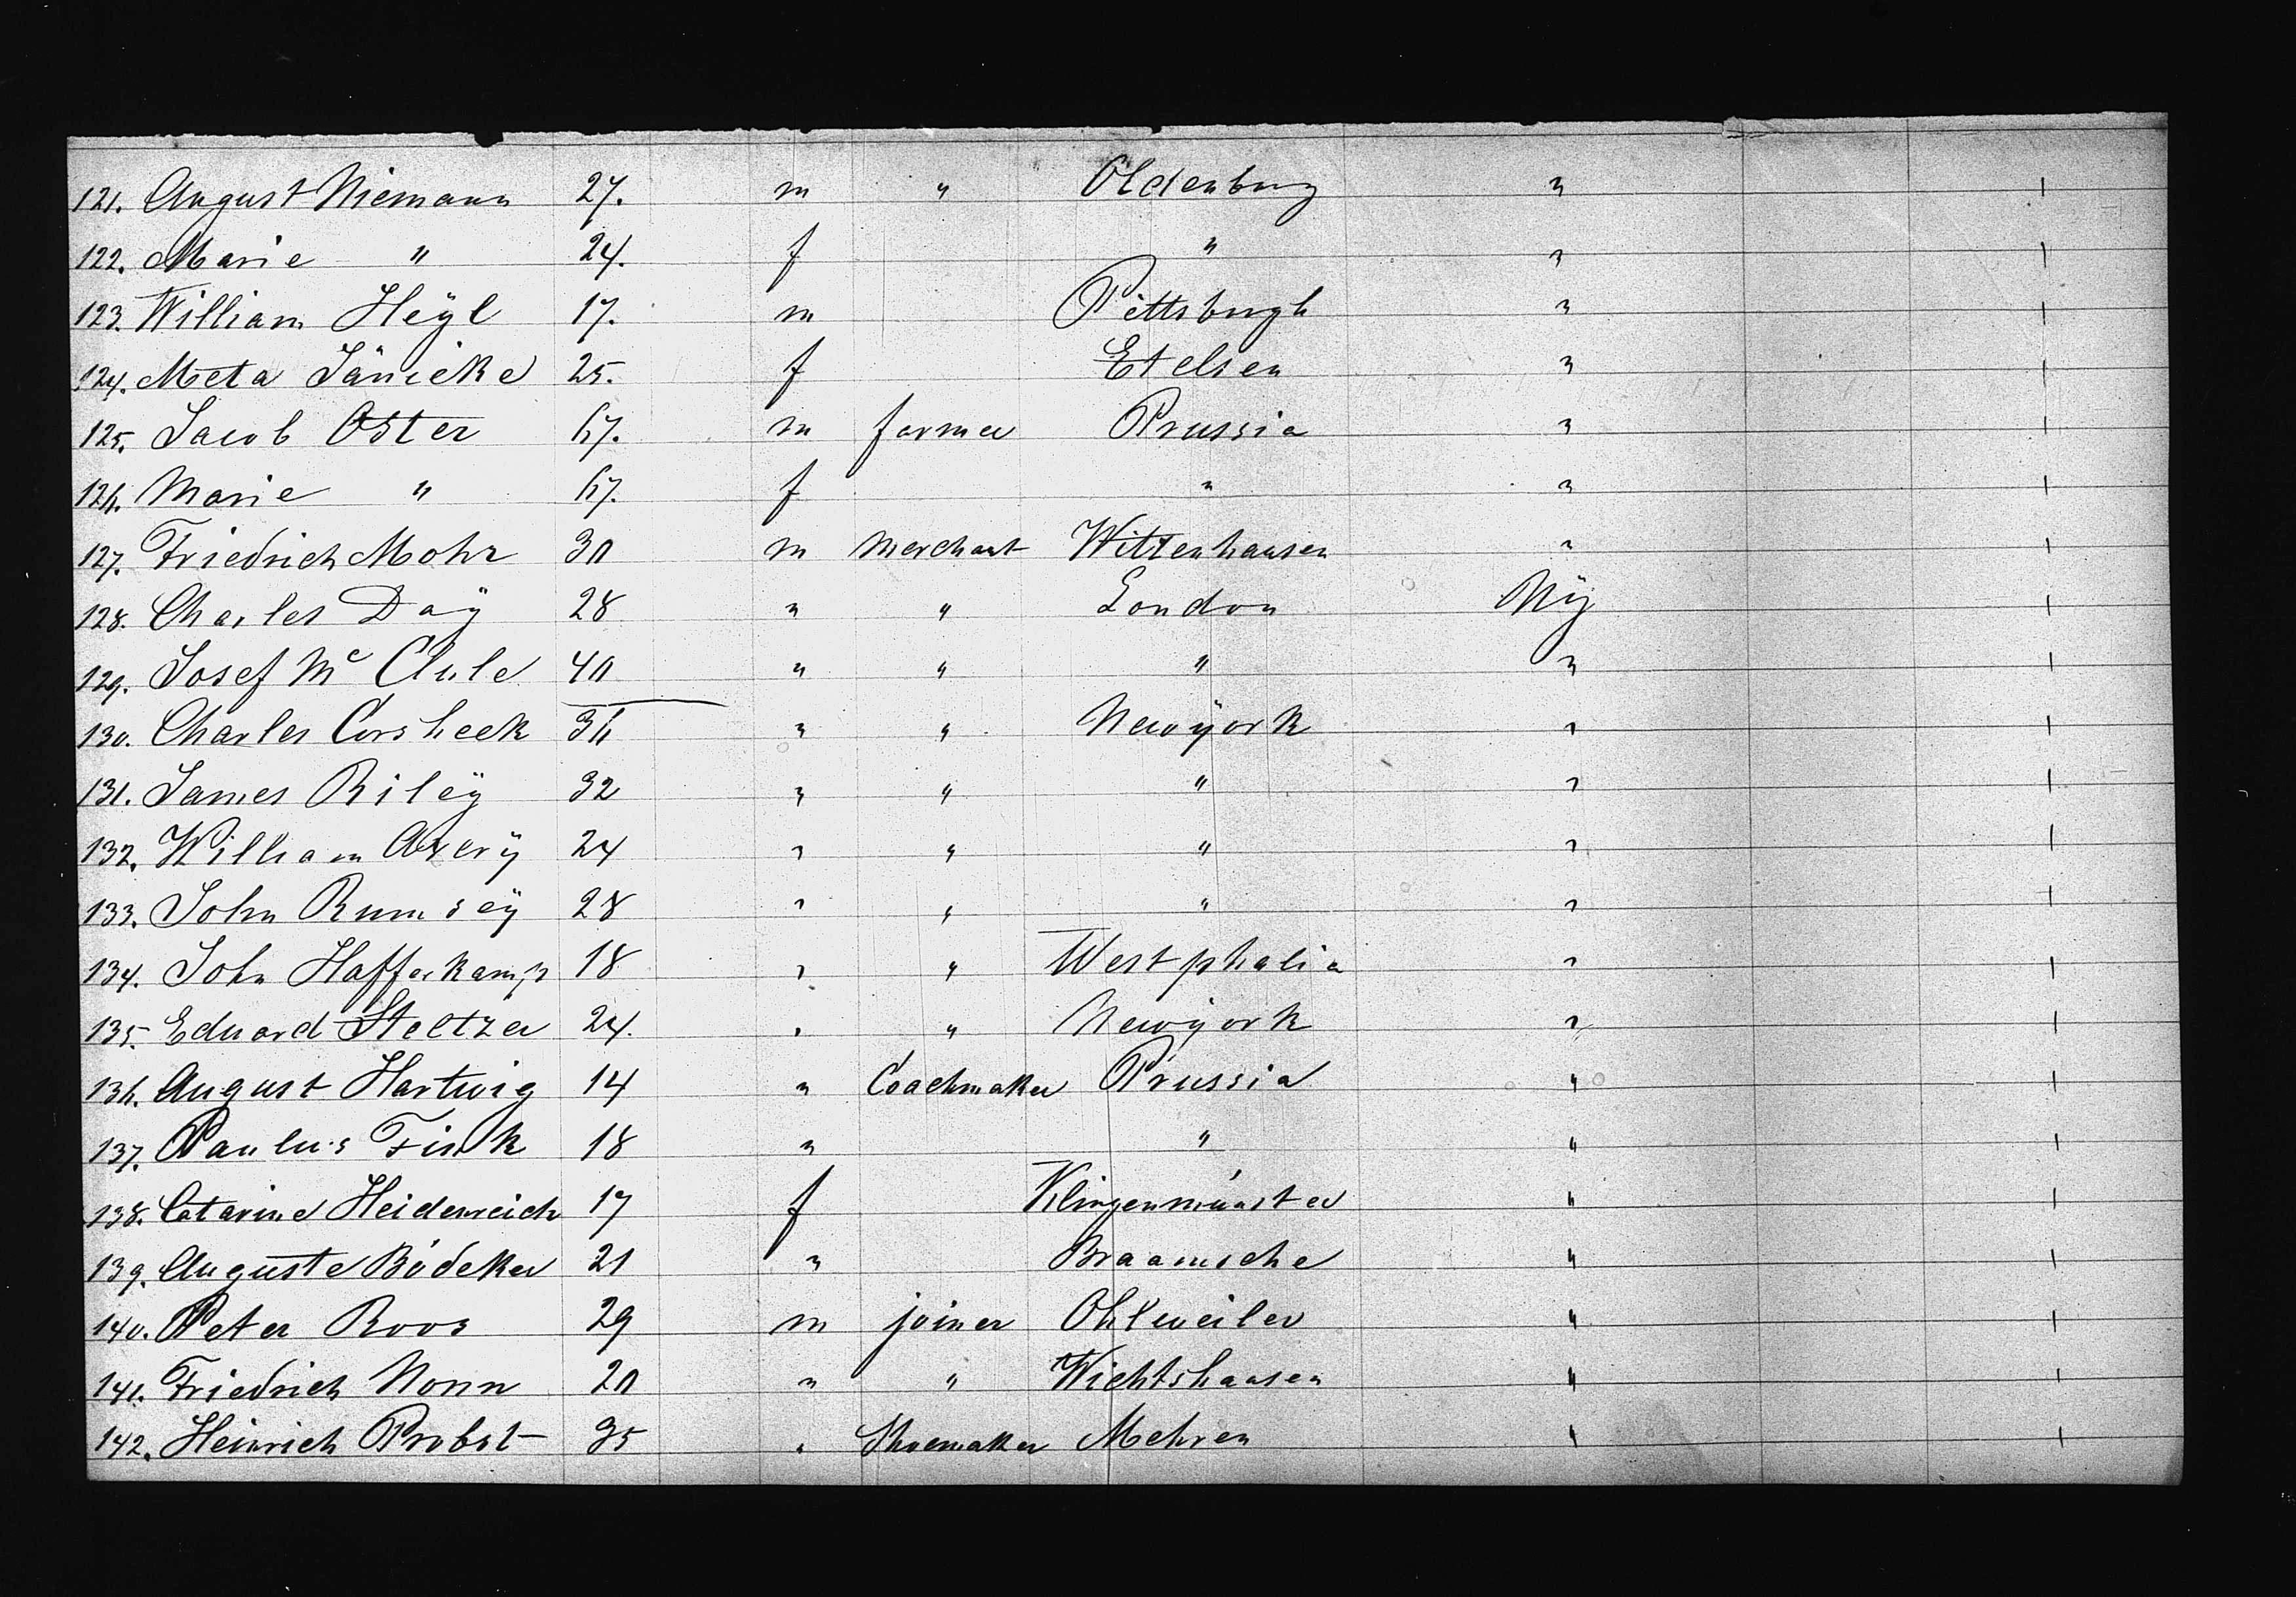 121. August Niemann 27. m " Oldenburg "
122. Marie " 24. f " "
123. William Heÿl 17. m Pittsburgh "
124. Meta Jänicke 25. f Etelsen "
125. Jacob Oster 67. m farmer Prussia "
126. Marie " 67. f " "
127. Friedrich Mohr 30 m Merchant Witzenhausen "
128. Charles Daÿ 28 " " London Nÿ
129. Josef Mc 40 " " " "
130. Charles Corsheek 36 " " Newÿork "
131. James Rileÿ 32 " " " "
132. William Averÿ 24 " " " "
133. John Rumseÿ 28 " " " "
134. John Hafferkamp 18 " " Westphalia "
135. Eduard Steltzer 24. " " Newÿork "
136. August Hartwig 14 " Coachmaker Prussia "
137. Paulus Fink 18 " " "
138. Catarine Heidenreich 17 f Klingenmünster "
139. Auguste Bödeker 21 " Braamsche "
140. Peter Roos 29 m joiner Ohlweiler "
141. Friedrich Nonn 20 " " Wichtshausen "
142. Heinrich Probst 35 " Shoemaker Mehren "